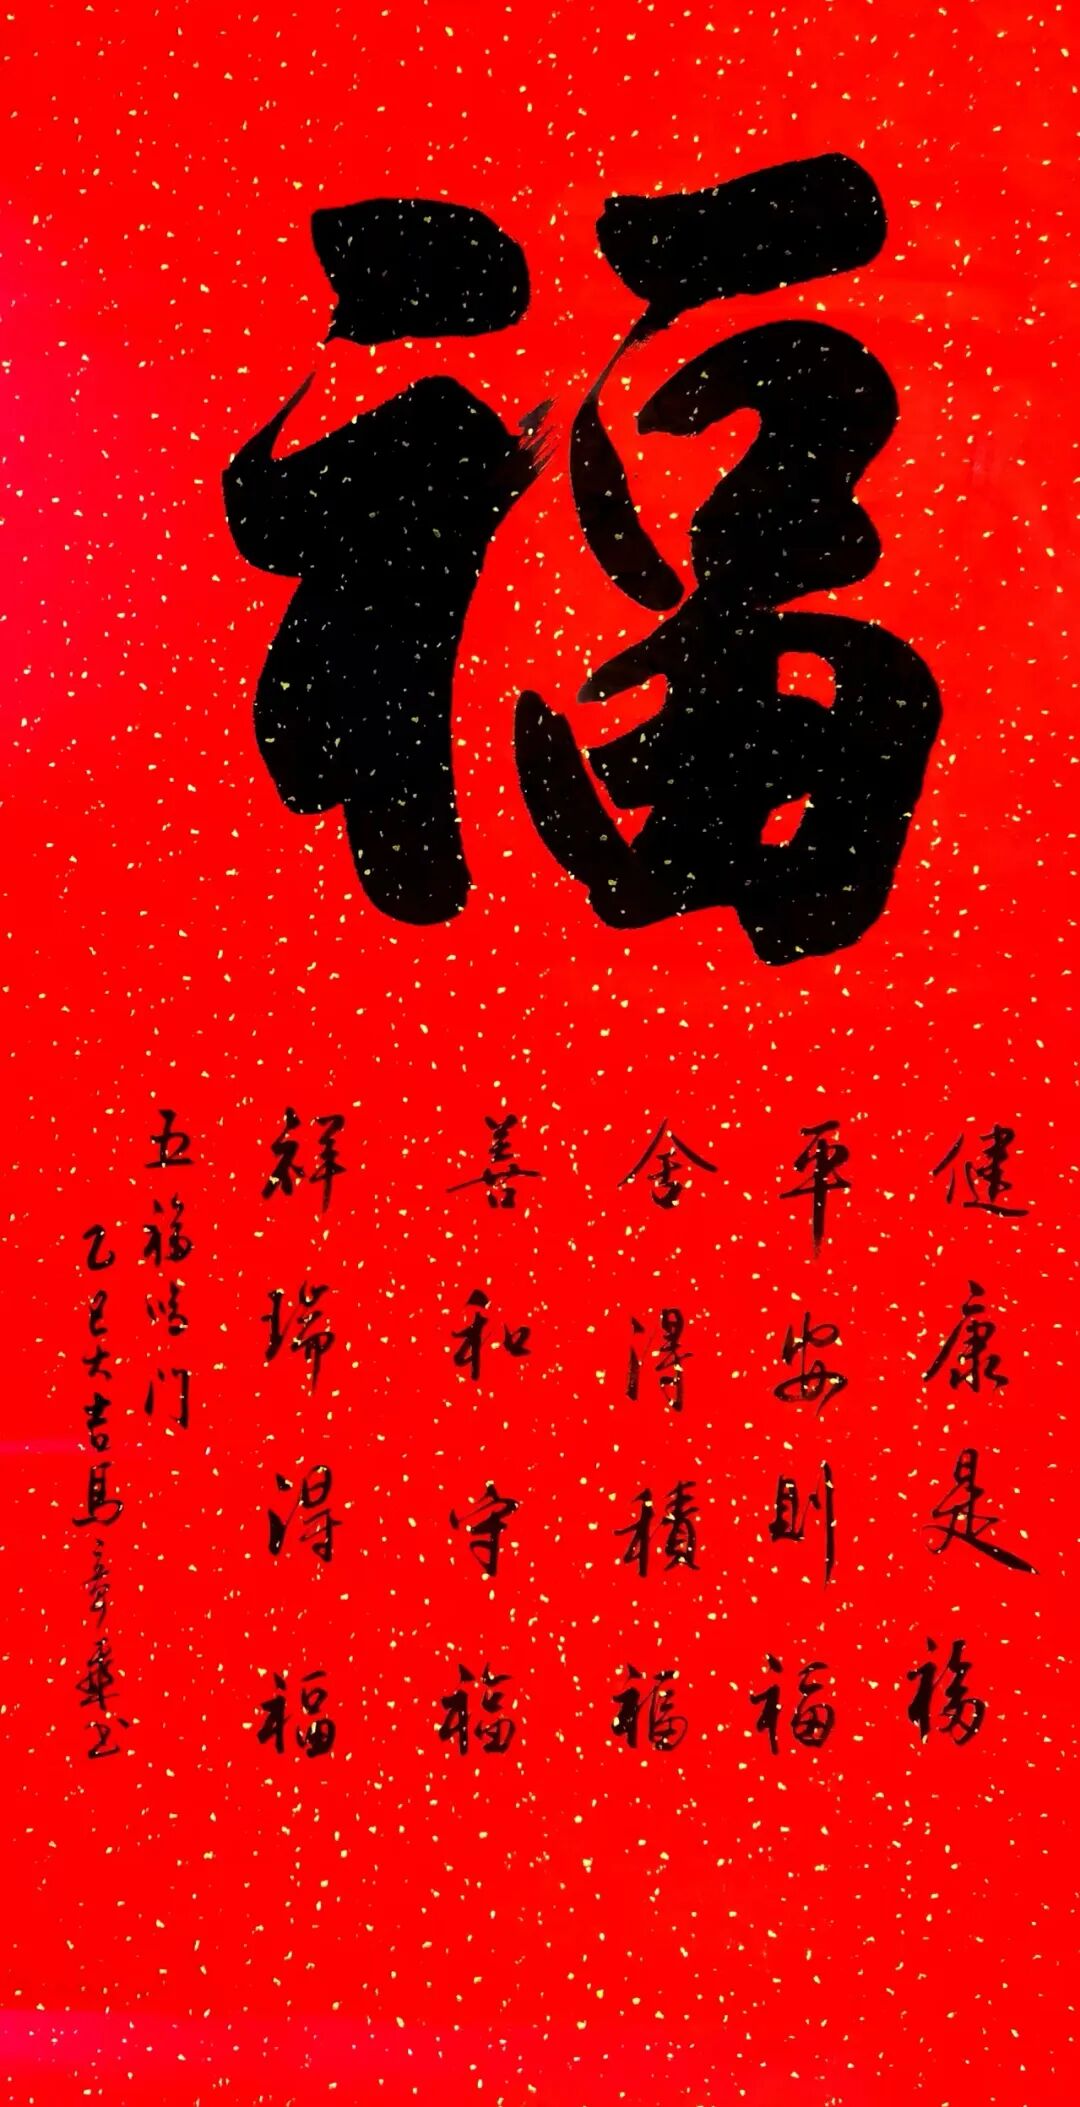 福
健康是福
平安则福
舍得積福
善和守福
祥瑞得福
五福临门
乙巳大吉馬章乘书